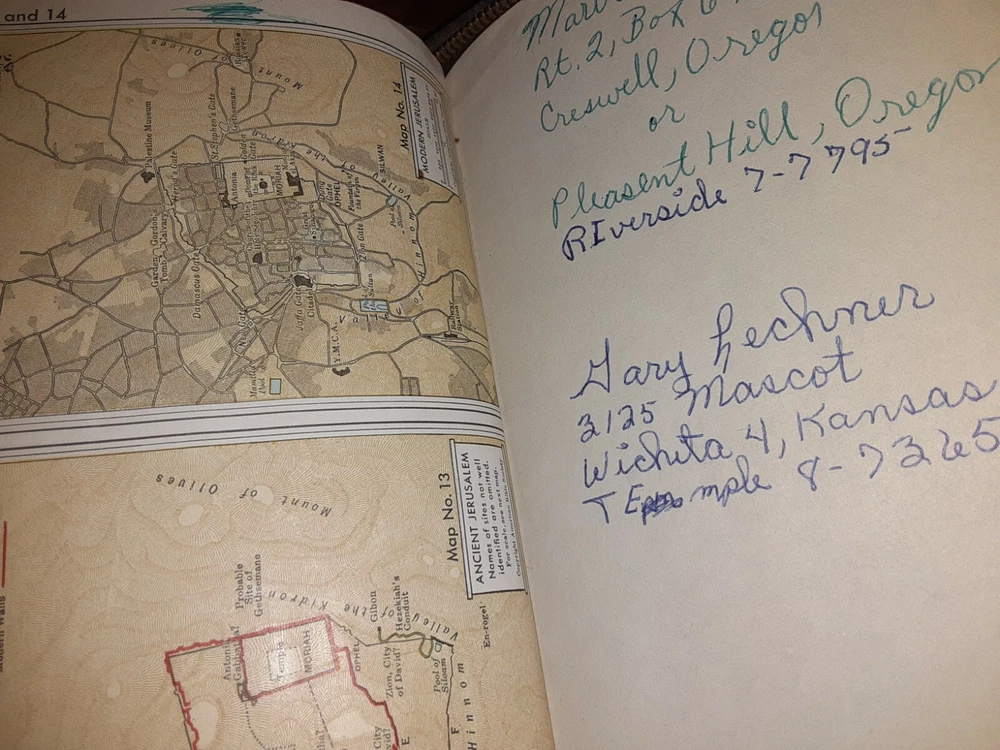 and 14
Map No. 14
MODERN JERUSALEM
Mount of Olives
Russian
Palestine Museum
St. Stephen's Gate
Gethsemane
Herod's Gate
Antonia
MORIAH
Valley of the Kidron
SILWAN
OPHEL
Gordon's
Calvary
Garden
Tomb
Damascus Gate
Zion Gate
Jaffa Gate
Citadel
Y.M.C.A.
Hinnom
Railway
Station
Map No. 13
ANCIENT JERUSALEM
Names of sites not well
identified are omitted.
For scale, see next map.
Copyright American Bible Society
Mount of Olives
Probable
Site of
Gethsemane
Valley of the Kidron
Gihon
Hezekiah's
Conduit
Antonia
Gabbatha?
Temple
MORIAH
OPHEL
Zion, City
of David?
Pool of
Siloam
En-rogel
Hinnom
Rt. 2, Box 6
Creswell, Oregon
or
Pleasent Hill, Oregon
RIverside 7-7795
Gary Lechner
3125 Mascot
Wichita 4, Kansas
TEmple 8-7365